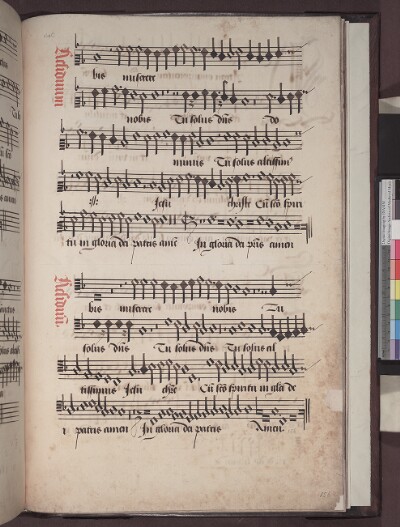 Residuum
bis miserere
nobis Tu solus dns do
minus Tu solus altissim
Jesu christe Cu scto spiri
tu in gloria dei patris ame In gloria dei pris amen
Residuum
bis miserere nobis Tu
solus dns Tu solus dns Tu solus al
tissimus Jesu chse Cu scto spiritu in glia de
i patris amen In gloria dei patris Amen.